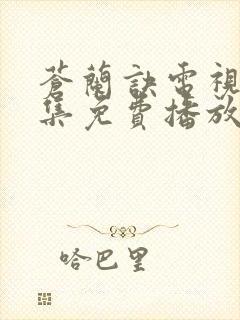 蒼蘭訣電視
集免費播放
哈巴里